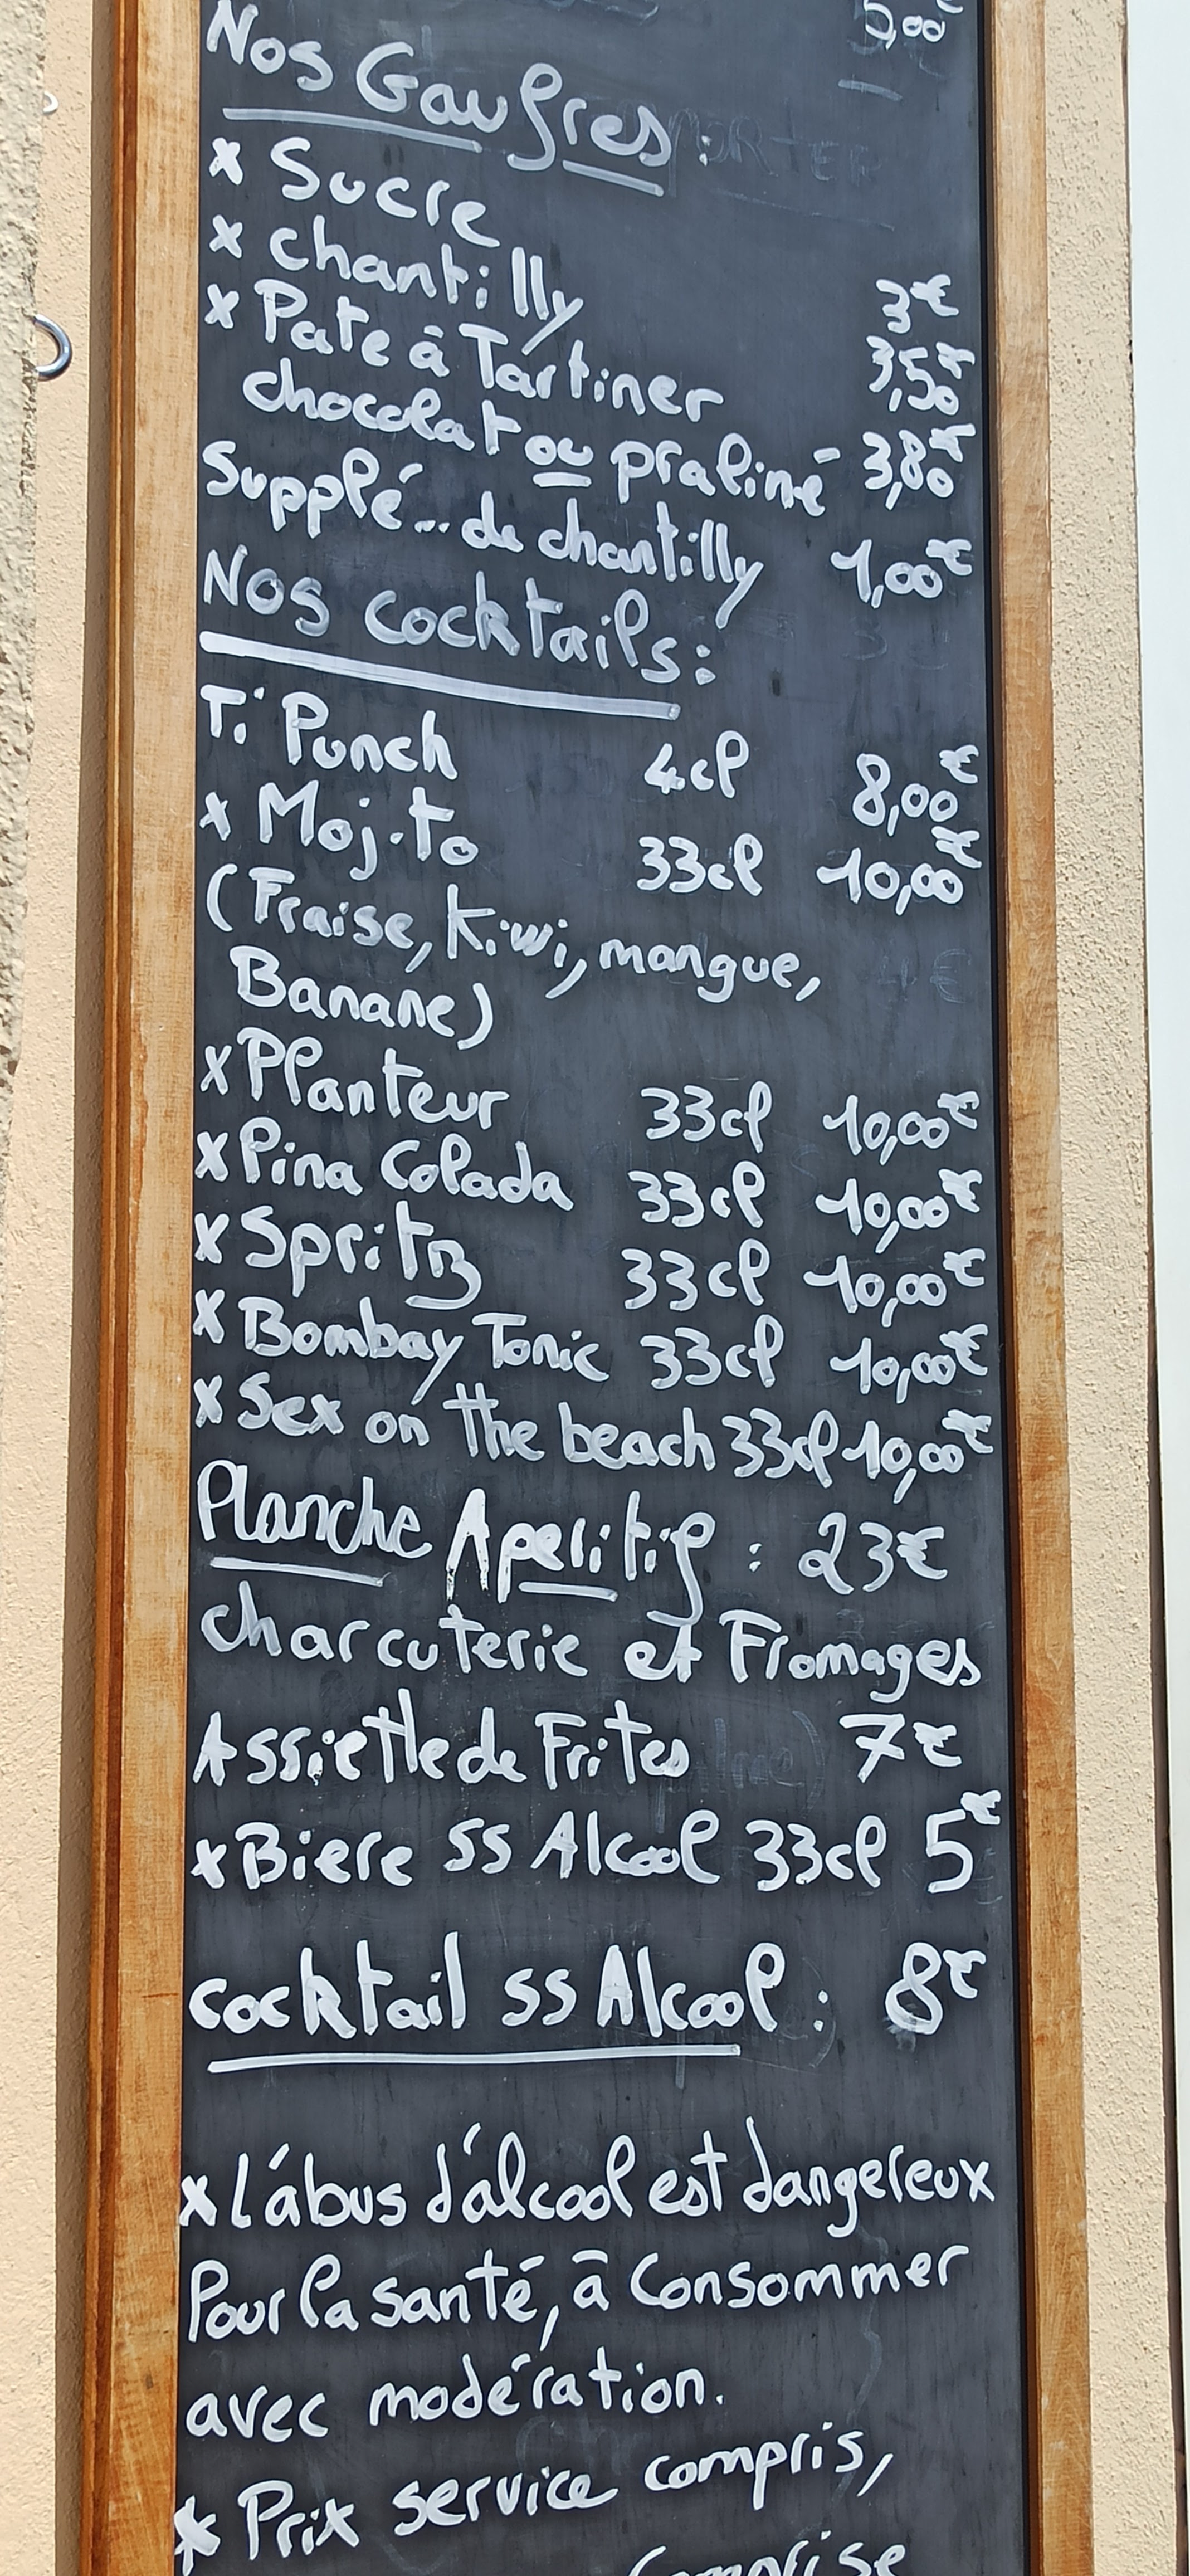 5,00€
Nos Gaufres :
x Sucre 3€
x chantilly 3,50€
x Pate à Tartiner
chocolat ou praliné 3,80€
Supplé... de chantilly 1,00€
Nos cocktails :
Ti Punch 4cl 8,00€
x Mojito 33cl 10,00€
(Fraise, Kiwi, mangue,
Banane)
x Planteur 33cl 10,00€
x Pina Colada 33cl 10,00€
x Spritz 33cl 10,00€
x Bombay Tonic 33cl 10,00€
x Sex on the beach 33cl 10,00€
Planche Aperitif : 23€
charcuterie et Fromages
Assiette de Frites 7€
x Biere ss Alcool 33cl 5€
cocktail ss Alcool : 8€
x L'abus d'alcool est dangereux
Pour la santé, à Consommer
avec modération.
* Prix service compris,
Comprise